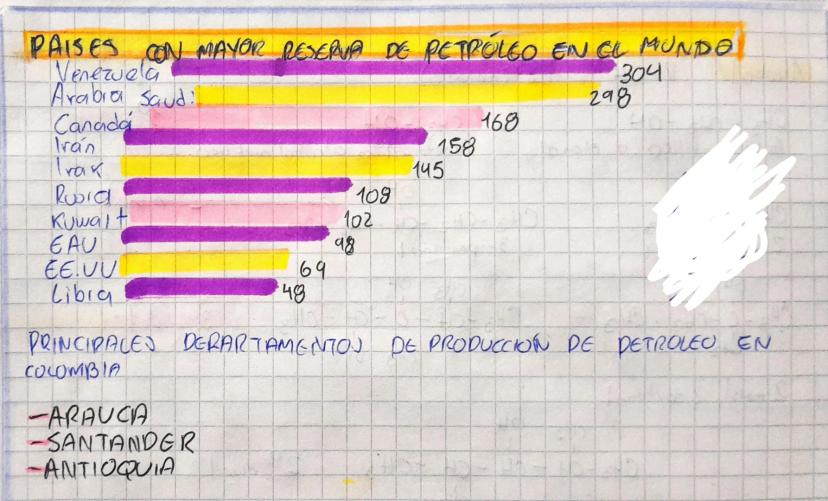 PAISES CON MAYOR RESERVA DE PETRÓLEO EN EL MUNDO
Venezuela 304
Arabia Saudi 298
Canadá 168
Irán 158
Irak 145
Rusia 108
Kuwait 102
EAU 98
EE.UU 69
Libia 48
PRINCIPALES DEPARTAMENTOS DE PRODUCCIÓN DE PETROLEO EN
COLOMBIA
-ARAUCA
-SANTANDER
-ANTIOQUIA